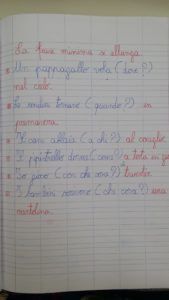 La frase minima si allunga
Un pappagallo vola (dove?)
nel cielo.
Le rondini tornano (quando?) in
primavera.
Il cane abbaia (a chi?) al coniglio
Il pipistrello dorme (come?) a testa in giù
Io gioco (con che cosa?)
I bambini scrivono (che cosa?) una